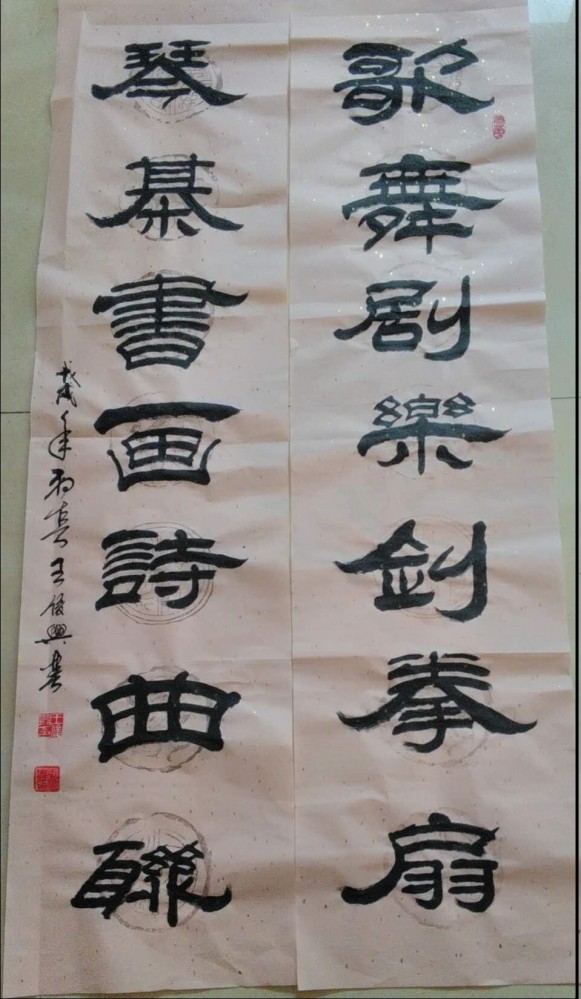 歌舞剧樂剑拳扇
琴棊書画詩曲聯
戊戌年初真王俊興書